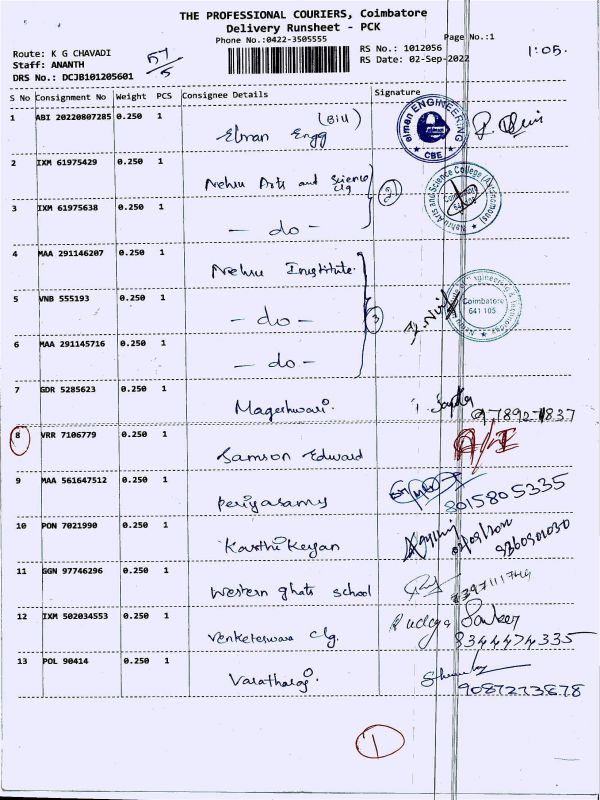 THE PROFESSIONAL COURIERS, Coimbatore
Delivery Runsheet - PCK
Phone No.:0422-3505555
Page No.:1
Route: K G CHAVADI
Staff: ANANTH
DRS No.: DCJB101205601
57/5
RS No.: 1012056
RS Date: 02-Sep-2022
1:05.
S No Consignment No Weight PCS Consignee Details Signature
1 ABI 20220807285 0.250 1 Elman Engg (Bill)
elman ENGINEERING
CBE
2 IXM 61975429 0.250 1 Nehru Arts and Science clg
Nehru Arts and Science College (Autonomous)
Coimbatore
3 IXM 61975638 0.250 1 - do -
4 MAA 291146207 0.250 1 Nehru Institute.
5 VNB 555193 0.250 1 - do - 3
Coimbatore
641 105
6 MAA 291145716 0.250 1 - do -
7 GDR 5285623 0.250 1 Mageshwari.
8 VRR 7106779 0.250 1 Samson Edward
9 MAA 561647512 0.250 1 Periyasamy 8015805335
10 PON 7021990 0.250 1 Karthikeyan
11 GGN 97746296 0.250 1 Western ghats school
12 IXM 502034553 0.250 1 Venketeswara clg. 8344474335
13 POL 90414 0.250 1 Varatharaj. 9087273878
1